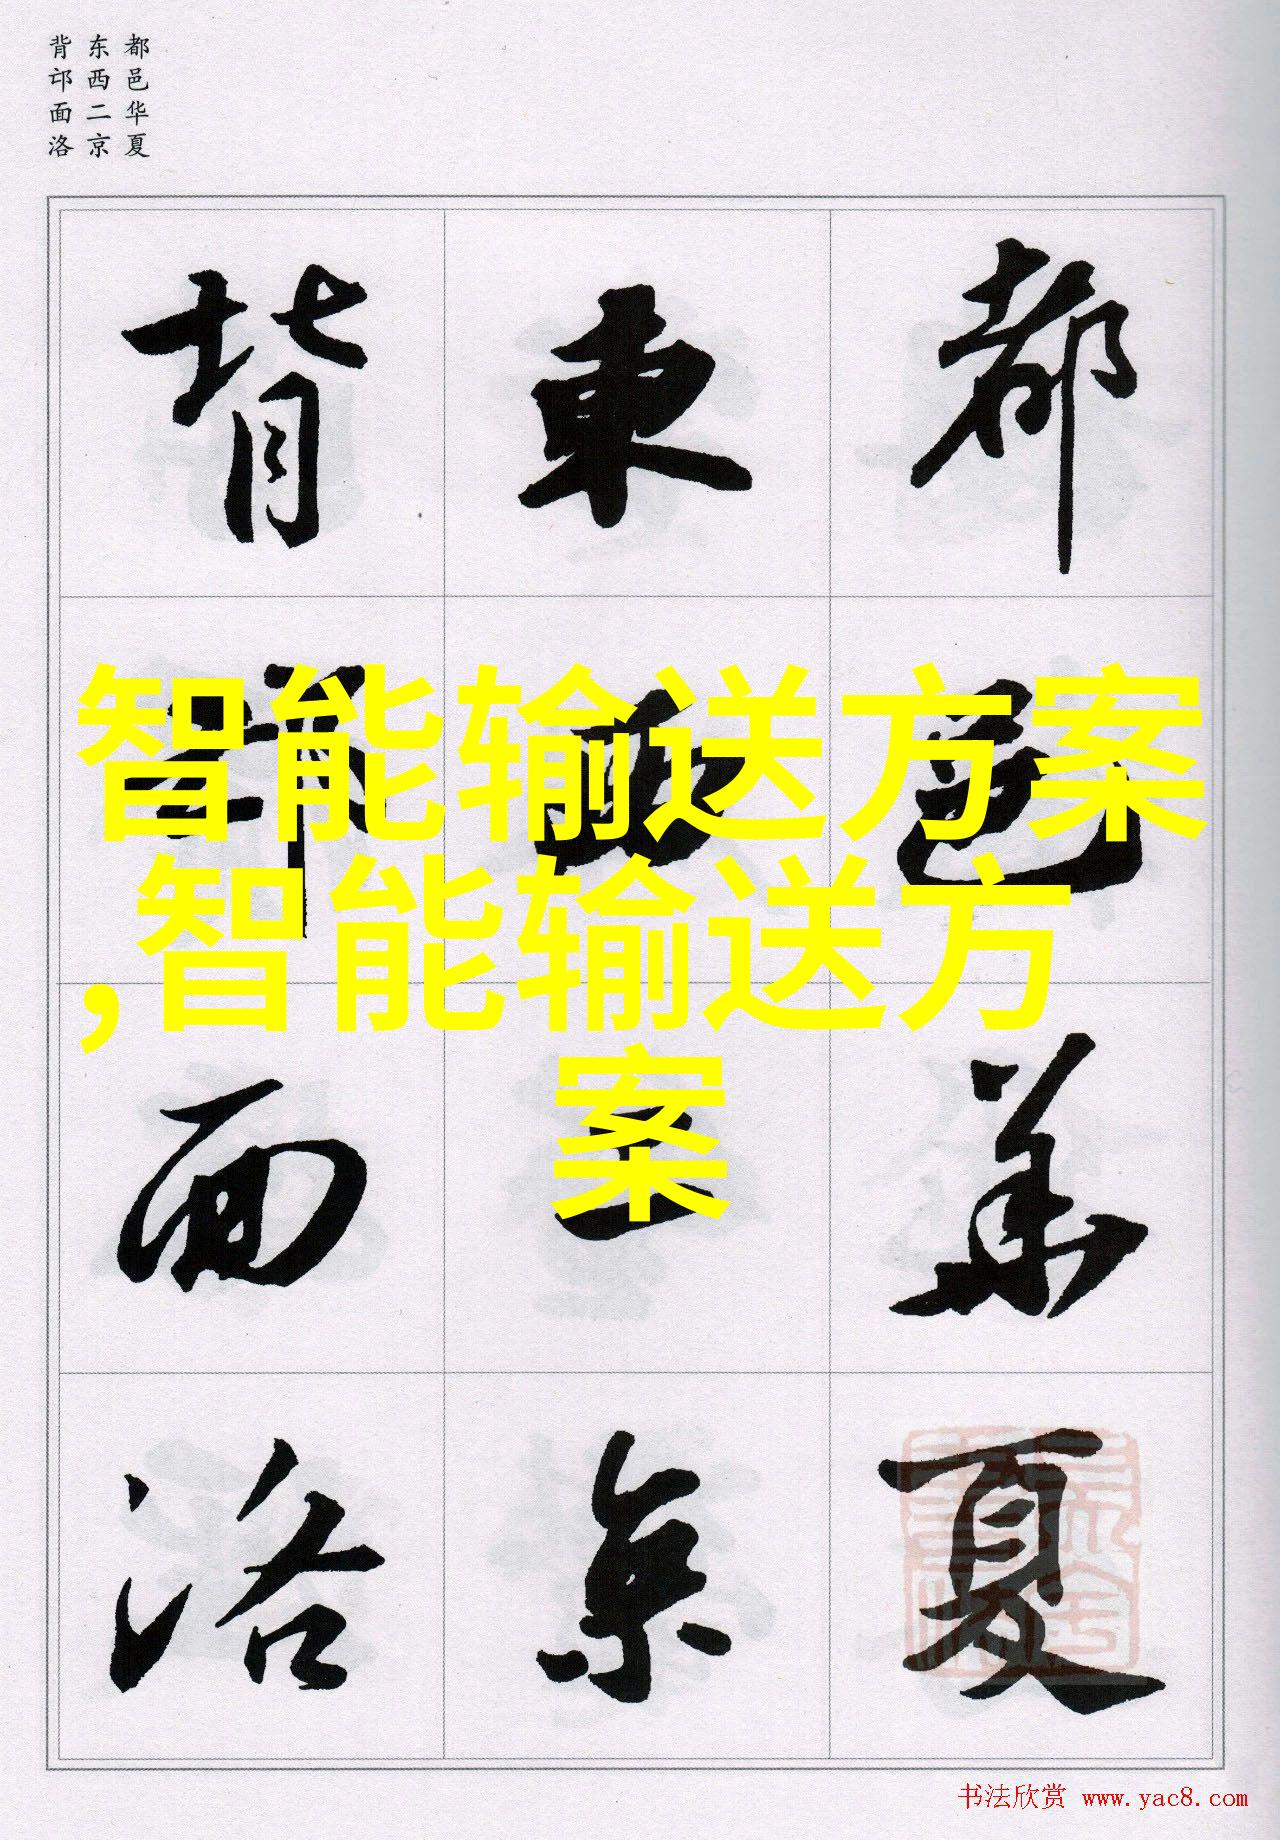 都邑华夏
东西二京
背邙面洛
都邑華夏
東西二京
背邙面洛
智能输送方案
,智能输送方
案
书法欣赏 www.yac8.com